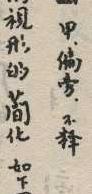 甲、偏旁，不释
的视形的简化 如下